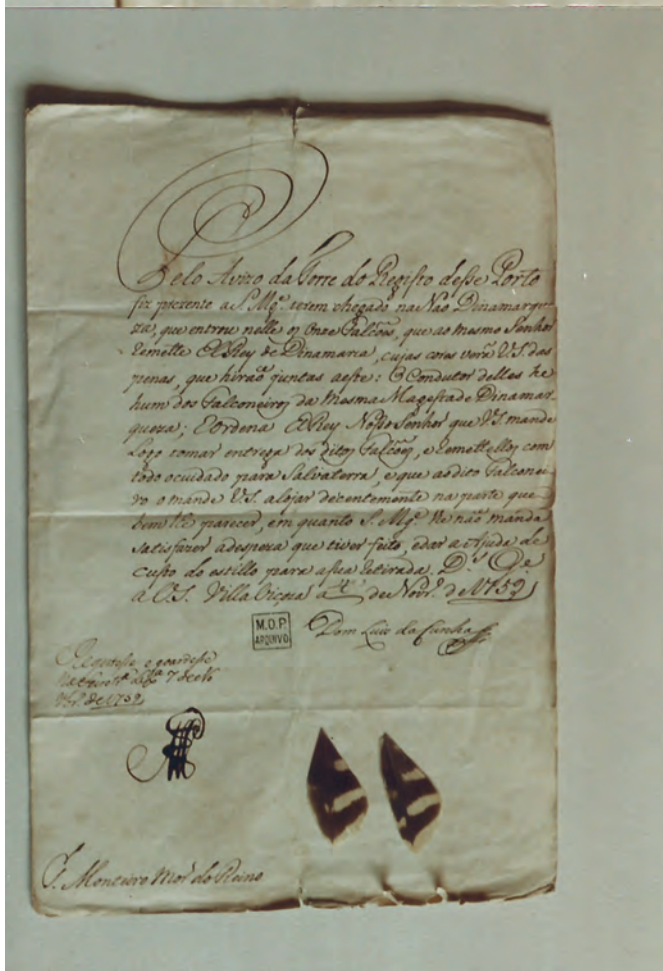 Pelo Avizo da Torre do Registo desse Porto
fiz prezente a S. Mg.e terem chegado na Não Dinamarque
za, que entrou nelle os Onze Falcões, que ao mesmo Senhor
Remette El Rey de Dinamarca, cujas cores verá V.S. das
penas, que hiraõ juntas a este: O Condutor delles he
hum dos Falconeiros da Mesma Magestade Dinamar
queza; E Ordena El Rey Nosso Senhor que V.S. mande
Logo tomar entrega dos ditos Falcões, e Remettellos com
todo o cuidado para Salvaterra, e que ao dito Falconei
ro o mande V.S. alojar decentemente na parte que
bem lhe parecer, em quanto S. Mg.e lhe não manda
satisfazer a despeza que tiver feito, e dar a Ajuda de
custo do estillo para a sua Retirada. D.s G.e
a V.S. Villa Viçoza a 4 de Nov.ro de 1752
Dom Luis da Cunha
M.O.P.
ARQUIVO
Registesse e goardesse
7 de No
vbr.o de 1752
S. Monteiro Mor do Reino